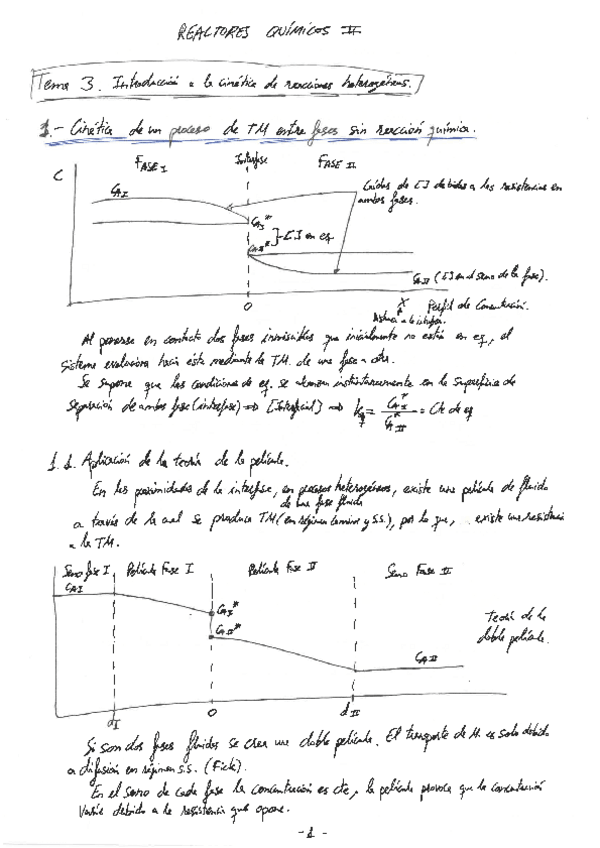 REACTORES QUÍMICOS II
Tema 3. Introducción a la cinética de reacciones heterogéneas.
1.- Cinética de un proceso de TM entre fases sin reacción química.
FASE I Interfase FASE II
C
CAI
Caídas de [] debidas a las resistencias en
ambas fases.
CAI*
CAII*
[] en eq
CAII ([] en el seno de la fase).
0
X
Perfil de Concentración.
Distancia a la interfase.
Al ponerse en contacto dos fases inmiscibles que inicialmente no están en eq, el
sistema evoluciona hacia éste mediante la TM. de una fase a otra.
Se supone que las condiciones de eq. se alcanzan instantáneamente en la superficie de
separación de ambas fases (interfase) => [Interfacial] => Keq = CAI* / CAII* = Cte de eq
1.1. Aplicación de la teoría de la película.
En las proximidades de la interfase, en procesos heterogéneos, existe una película de fluido
de una fase fluida
a través de la cual se produce TM (en régimen laminar y S.S.), por lo que, existe una resistencia
a la TM.
Seno fase I Película Fase I Película Fase II Seno Fase II
CAI
CAI*
CAII*
CAII
Teoría de la
doble película.
dI
0
dII
Si son dos fases fluidas se crea una doble película. El transporte de M. es solo debido
a difusión en régimen S.S. (Fick).
En el seno de cada fase la concentración es cte, la película provoca que la concentración
varíe debido a la resistencia que opone.
-1-